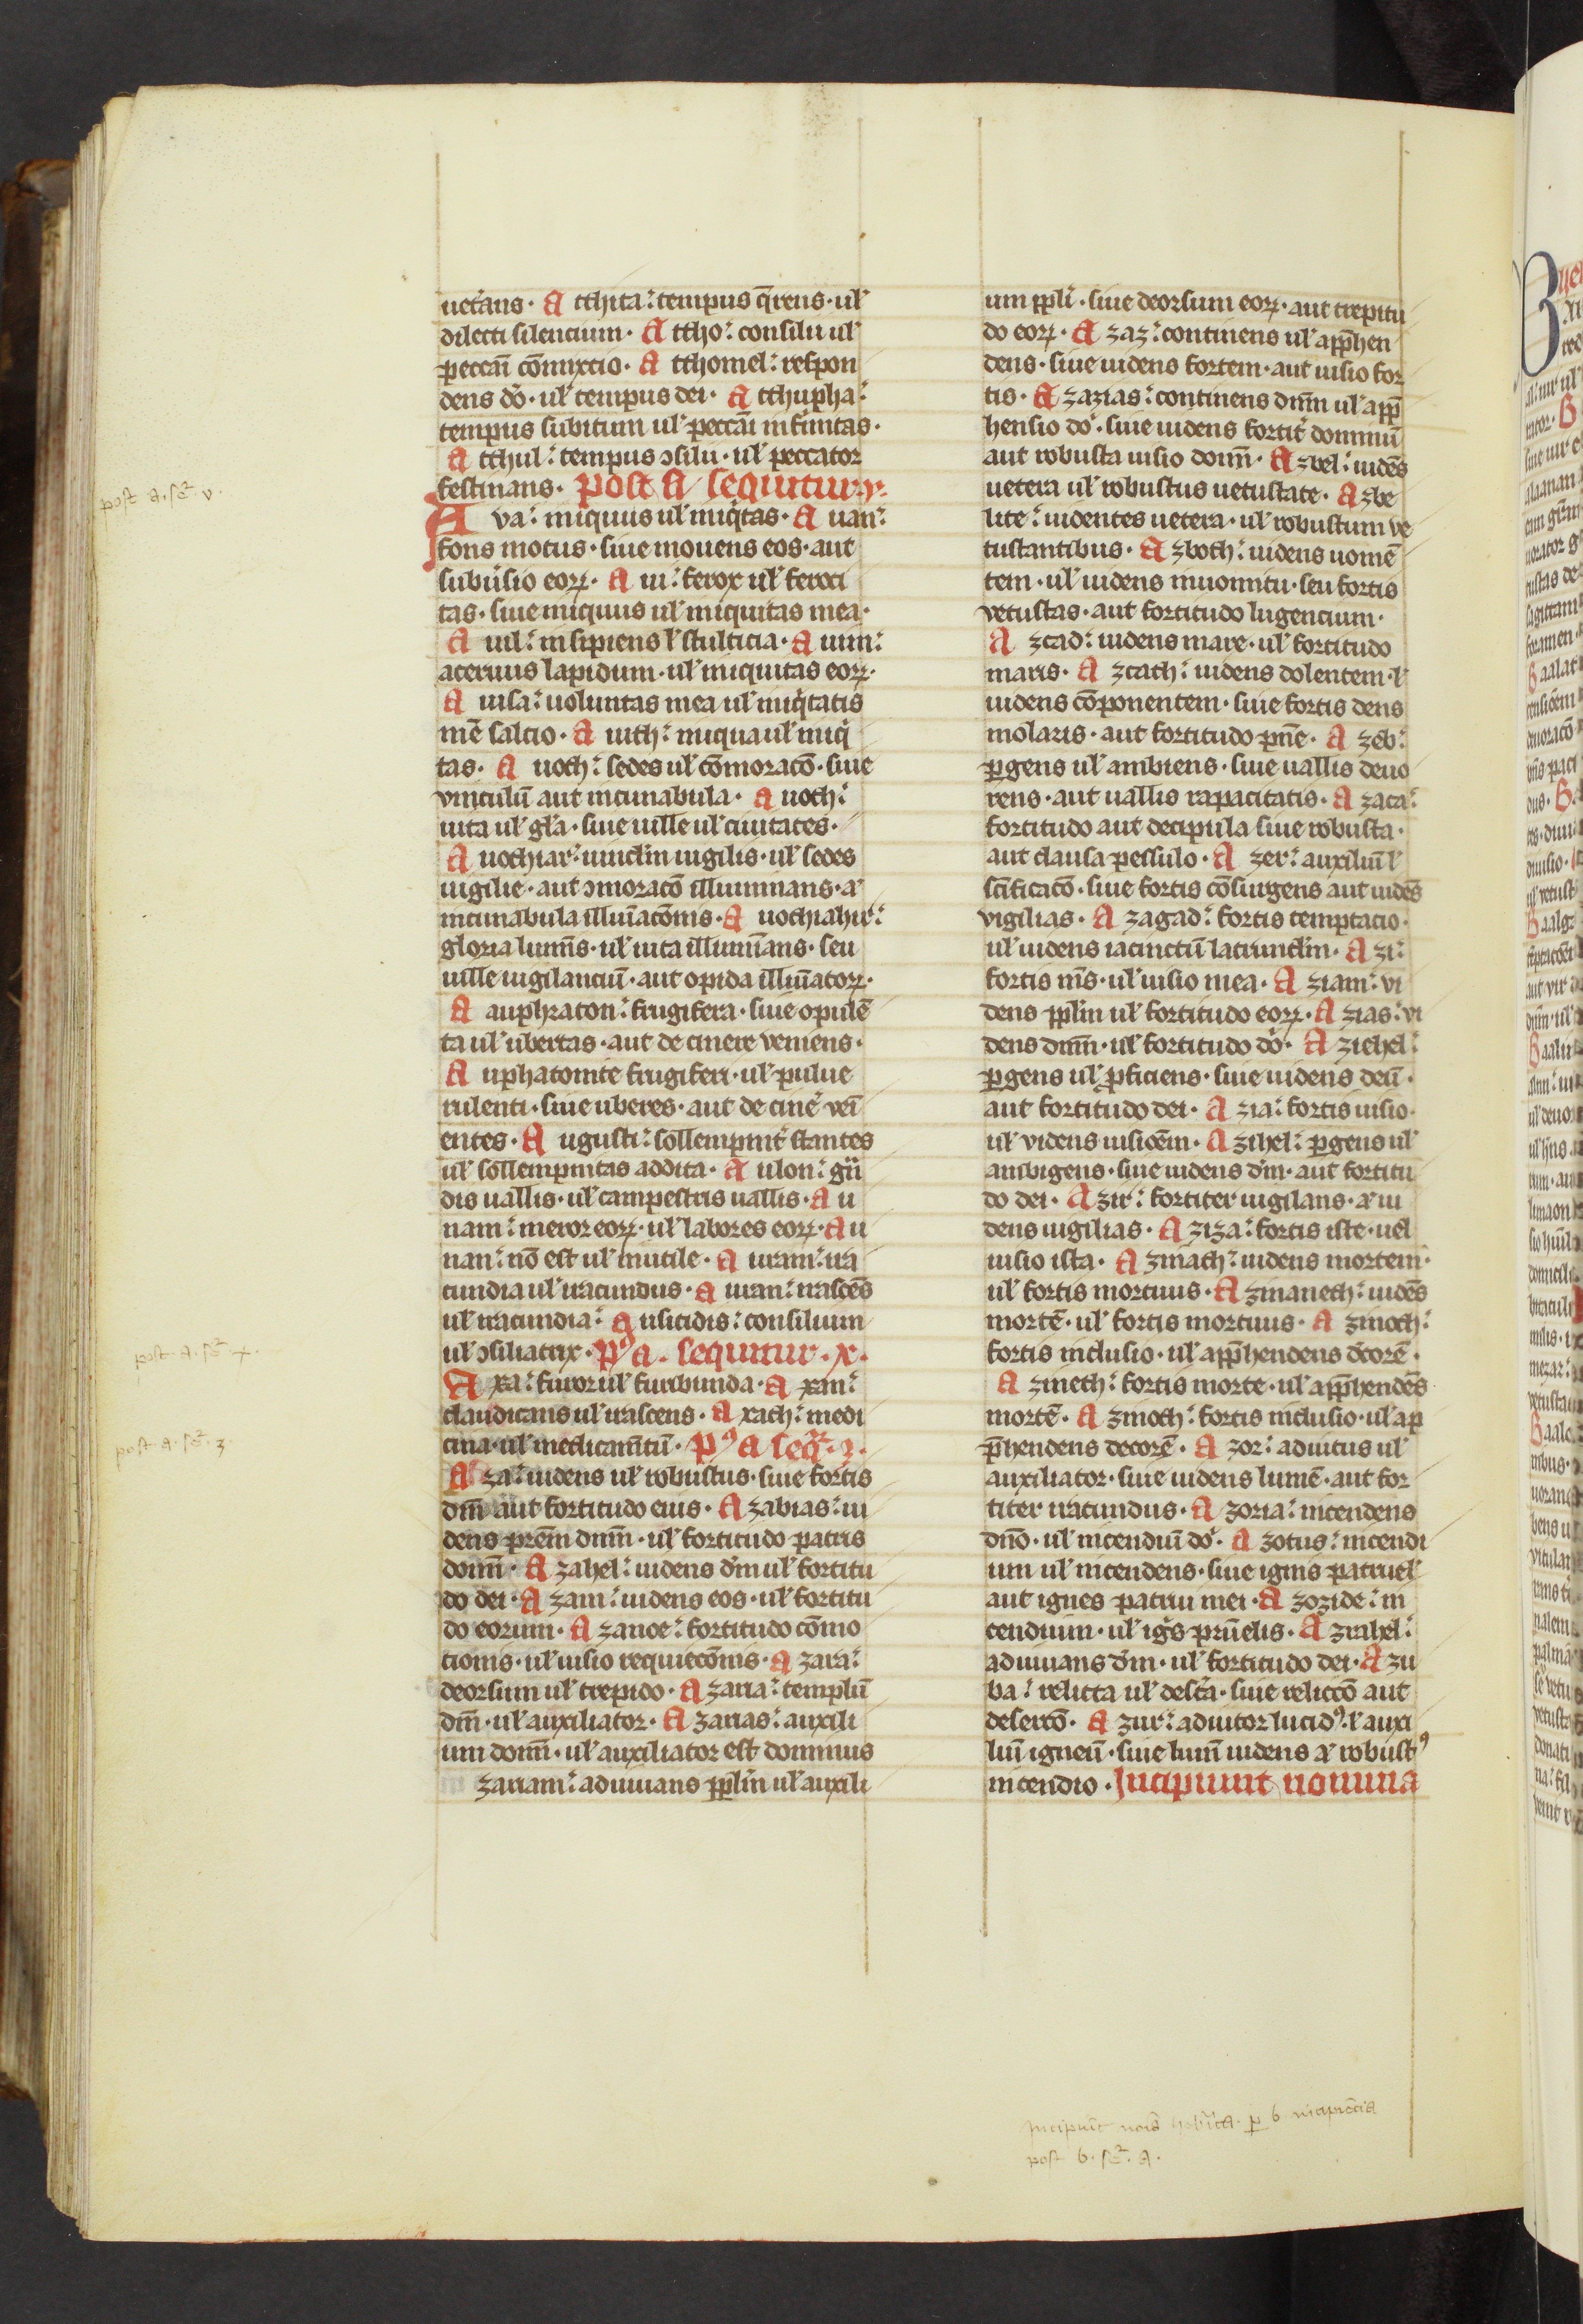 uet᷑ans · A tthita ⁖ tempus q̄rens · ul̓
dilecti silencium · A ttho ⁖ consilii ul̓
peccati ꝯ̄mixcio · A tthomel ⁖ respon
dens dō · ul̓ tempus dei · A tthupha ⁖
tempus subitum ul̓ peccāi infinitas ·
A tthul ⁖ tempus ꝯsilii · ul̓ peccator
festinans · post A sequitur v ·
post a · se᷑ · v ·
A va ⁖ iniquus ul̓ iniq̇tas · A uan ⁖
fons motus · siue mouens eos · aut
subu᷑sio eoꝝ · A ui ⁖ ferox ul̓ feroci
tas · siue iniquus ul̓ iniquitas mea ·
A uil ⁖ insipiens l̓ stulticia · A uim ⁖
aceruus lapidum · ul̓ iniquitas eoꝝ ·
A uisa ⁖ uoluntas mea ul̓ iniq̇tatis
mē saltio · A uith ⁖ iniqua ul̓ iniq̇
tas · A uoth ⁖ sedes ul̓ cōmoracō · siue
vinculū aut incunabula · A uoth ⁖
uita ul̓ gl̓a · siue uille ul̓ ciuitates ·
A uothiar ⁖ uincl̓m uigilis · ul̓ sedes
uigilie · aut ꝯmoracō illuminans · a᷑
incunabula illuīacōnis · A uothiahir ⁖
gloria lumīs · ul̓ uita illumīans · seu
uille uigilanciū · aut opida illuīatoꝝ ·
A auphraton ⁖ frugifera · siue opulē
ta ul̓ ubertas · aut de cinere veniens ·
A uphatomte frugiferi · ul̓ pulue
rulenti · siue uberes · aut de cine᷑ veī
entes · A ugusti ⁖ sollempnit᷑ stantes
ul̓ sollempnitas addita · A ulon ⁖ gn̄
dis uallis · ul̓ campestris uallis · A u
nam ⁖ meror eoꝝ · ul̓ labores eoꝝ · A u
nan ⁖ nō est ul̓ inutile · A uram ⁖ ira
cundia ul̓ iracundus · A uran ⁖ irascēs
ul̓ iracundia ⁖ A usitidis ⁖ consilium
ul̓ ꝯsiliatrix · pꝰ a · sequitur · x ·
post · a · se᷑ · x ·
A xa ⁖ furor ul̓ furibunda · A xan ⁖
claudicans ul̓ irascens · A xath ⁖ medi
cina · ul̓ medicam̄tū · Pꝰ a seq᷑ · z ·
post · a · se᷑ · z ·
A za ⁖ uidens ul̓ robustus · siue fortis
dn̄i aut fortitudo eius · A zabias ⁖ ui
dens pr̄em dn̄m · ul̓ fortitudo patris
domī · A zahel ⁖ uidens d̄m ul̓ fortitu
do dei · A zam ⁖ uidens eos · ul̓ fortitu
do eorum · A zanoe ⁖ fortitudo cōmo
tionis · ul̓ uisio requiecōnis · A zara ⁖
deorsum ul̓ trepido · A zaria ⁖ templū
dn̄i · ul̓ auxiliator · A zarias ⁖ auxili
um domī · ul̓ auxiliator est dominus
zariam ⁖ adiuuans ppl̓m ul̓ auxili
um ppl̓i · siue deorsum eoꝝ · aut trepitu
do eoꝝ · A zaz ⁖ continens ul̓ app̄hen
dens · siue uidens fortem · aut uisio for
tis · A zazias ⁖ continens dn̄m ul̓ app̄
hensio do᷑ · siue uidens fortit᷑ dominū
aut robusta uisio domī · A zbel ⁖ uidēs
uetera ul̓ robustus uetustate · A zbe
lite ⁖ uidentes uetera · ul̓ robustum ve
tustantibus · A zboth ⁖ uidens uomē
tem · ul̓ uidens inuomitu · seu fortis
vetustas · aut fortitudo lugencium ·
A zcad ⁖ uidens mare · ul̓ fortitudo
maris · A zcath ⁖ uidens dolentem · l̓
uidens cōponentem · siue fortis dens
molaris · aut fortitudo pn̄e · A zeb ⁖
ꝑgens ul̓ ambiens · siue uallis deuo
rens · aut uallis rapacitatis · A zaca ⁖
fortitudo aut decipula siue robusta ·
aut clausa pessulo · A zer ⁖ auxiliū l̓
sc̄ificacō · siue fortis cōsurgens aut uidēs
vigilias · A zagad ⁖ fortis temptacio ·
ul̓ uidens iacinctū latruncl̓m · A zi ⁖
fortis m̄s · ul̓ uisio mea · A ziam ⁖ vi
dens ppl̓m ul̓ fortitudo eoꝝ · A zias ⁖ vi
dens dn̄m · ul̓ fortitudo do᷑ · A ziehel ⁖
ꝑgens ul̓ ꝓficiens · siue uidens deū ·
aut fortitudo dei · A zia ⁖ fortis uisio ·
ul̓ videns uisiōem · A zihel ⁖ ꝑgens ul̓
ambigens · siue uidens d̄m · aut fortitu
do dei · A zir ⁖ fortiter uigilans · a᷑ ui
dens uigilias · A ziza ⁖ fortis iste · uel
uisio ista · A zmath ⁖ uidens mortem ·
ul̓ fortis mortuus · A zmaneth ⁖ uidēs
mortē · ul̓ fortis mortuus · A zmoth ⁖
fortis inclusio · ul̓ app̄hendens decorē ·
A zmeth ⁖ fortis morte · ul̓ app̄hendēs
mortē · A zmoth ⁖ fortis inclusio · ul̓ ap
p̄hendens decorē · A zor ⁖ adiutus ul̓
auxiliator · siue uidens lumē · aut for
titer iracundus · A zoria ⁖ incendens
dn̄o · ul̓ incendiū do᷑ · A zotus ⁖ incendi
um ul̓ incendens · siue ignis patruel̓
aut ignes patrui mei · A zozide ⁖ in
cendium · ul̓ ig̓s pat̄uelis · A zrahel ⁖
adiuuans d̄m · ul̓ fortitudo dei · A zu
ba ⁖ relicta ul̓ des̓ta · siue relictō aut
desertō · A zur ⁖ adiutor lucidꝰ · l̓ auxi
liū igneū · siue lumē uidens a᷑ robustꝰ
incendio · Incipiunt nomina
Incipiūt noīa heb᷑ica · ꝑ b · incipiēcia
post b · se᷑ · a ·